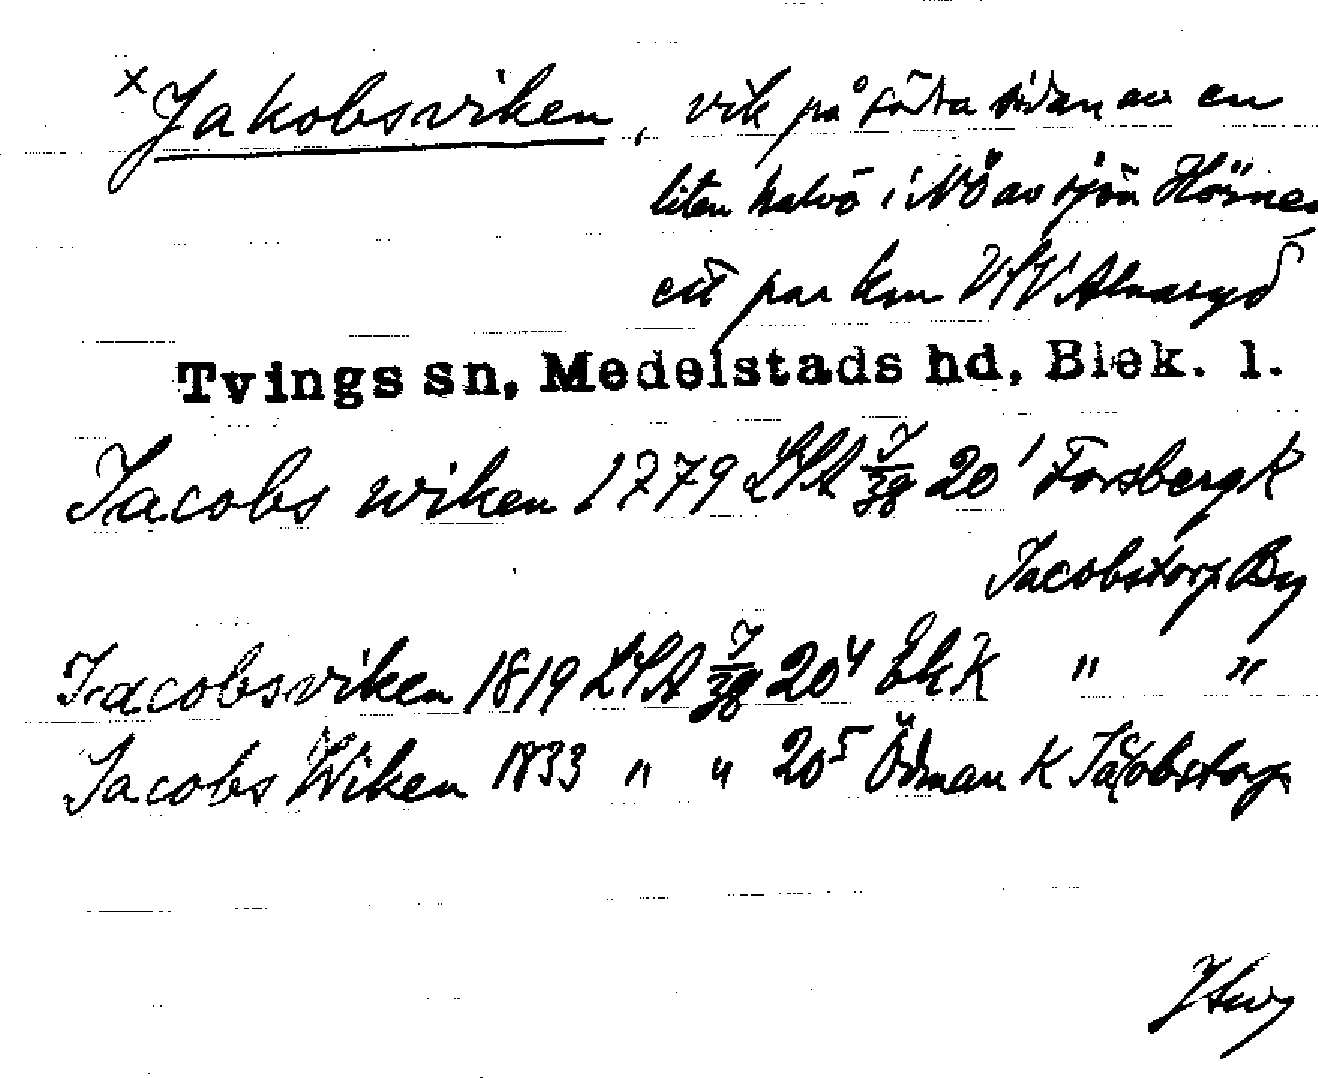 x Jakobsviken, vik på södra sidan av en
liten halvö i NÖ av sjön Hörnen
ett par km VSV Alnaryd
Tvings sn, Medelstads hd, Blek. l.
Jacobs wiken 1779 LSA 20¹ Forsberg K
Jacobstorp By
Jacobsviken 1819 LSA 20⁴ Ek K " "
Jacobs Wiken 1833 " " 20⁵ Ödman K Jacobstorp